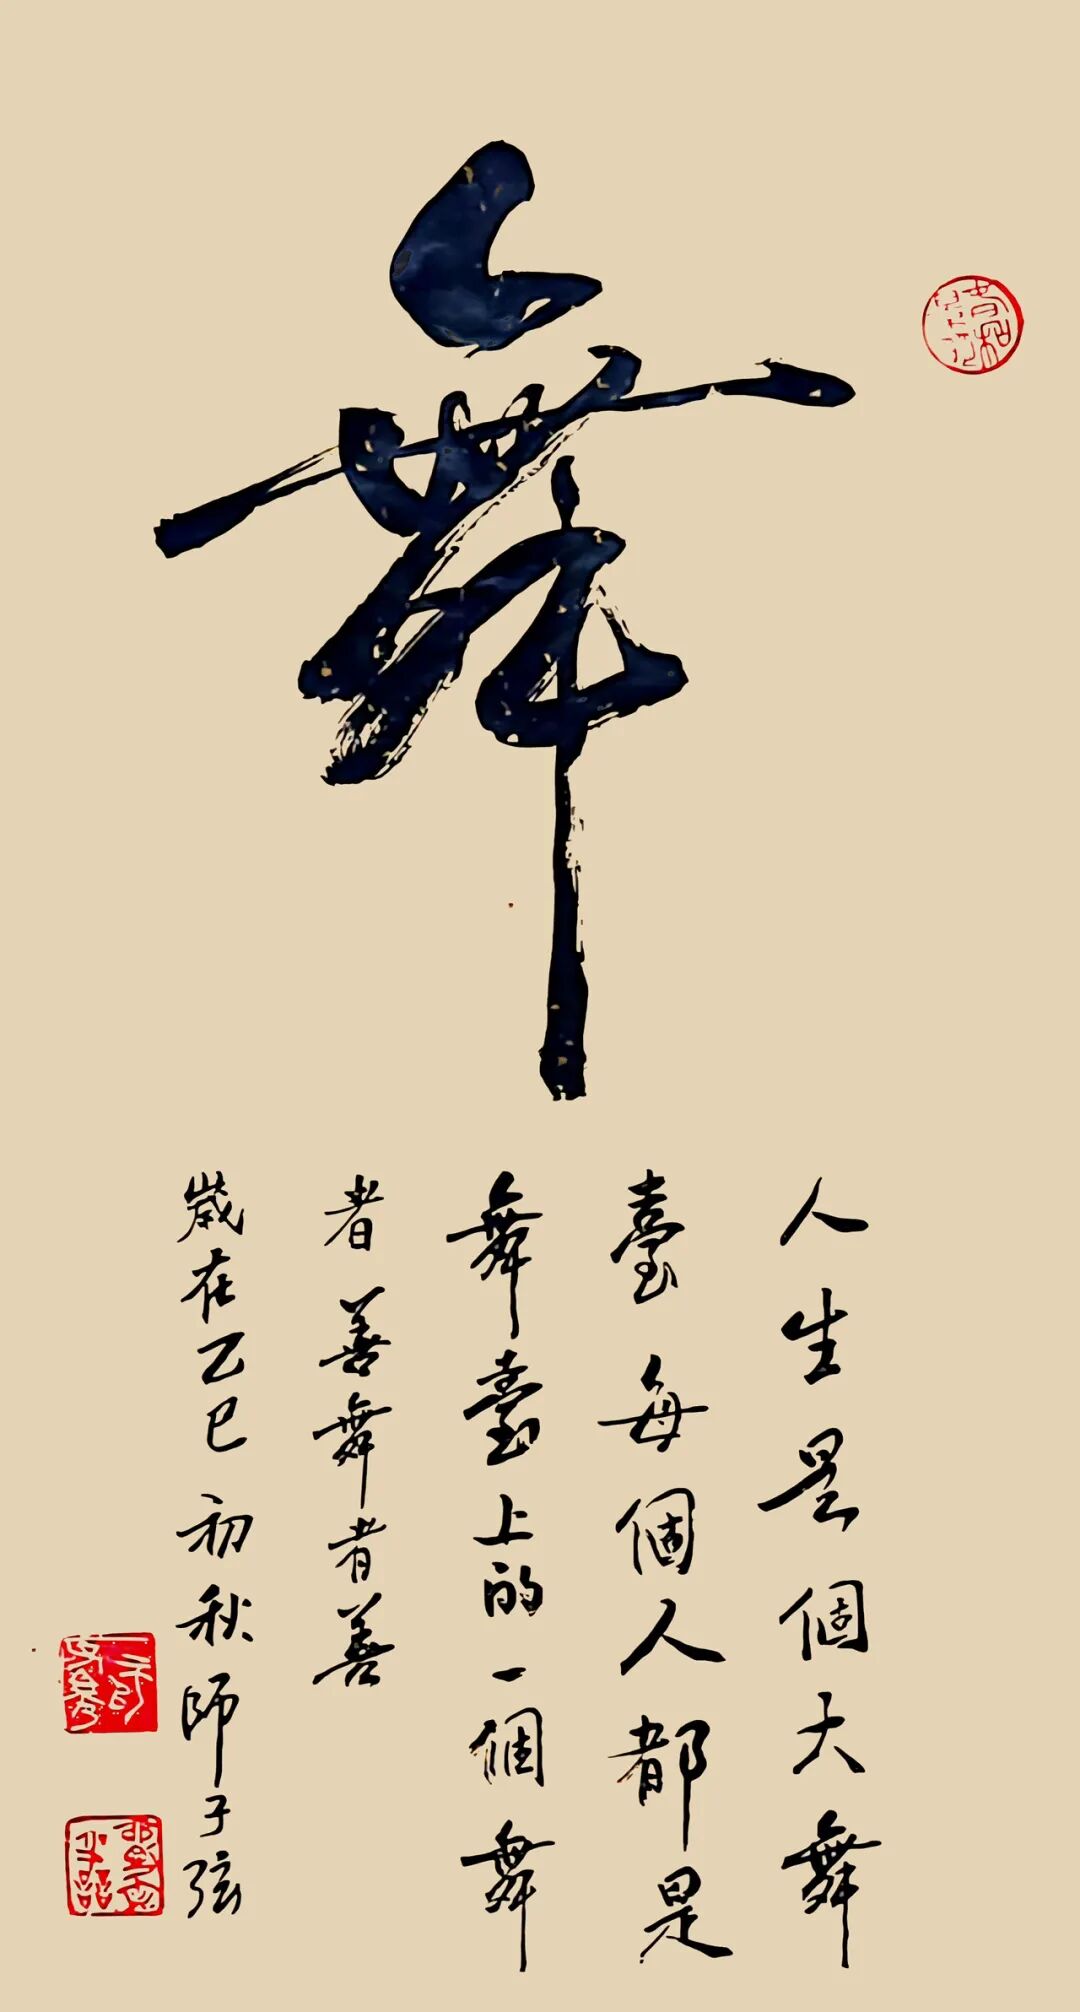 舞
人生是個大舞
臺每個人都是
舞臺上的一個舞
者善舞者善
歲在乙巳初秋師子弦